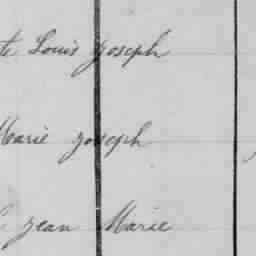 te Louis Joseph
Marie Joseph
Jean Marie